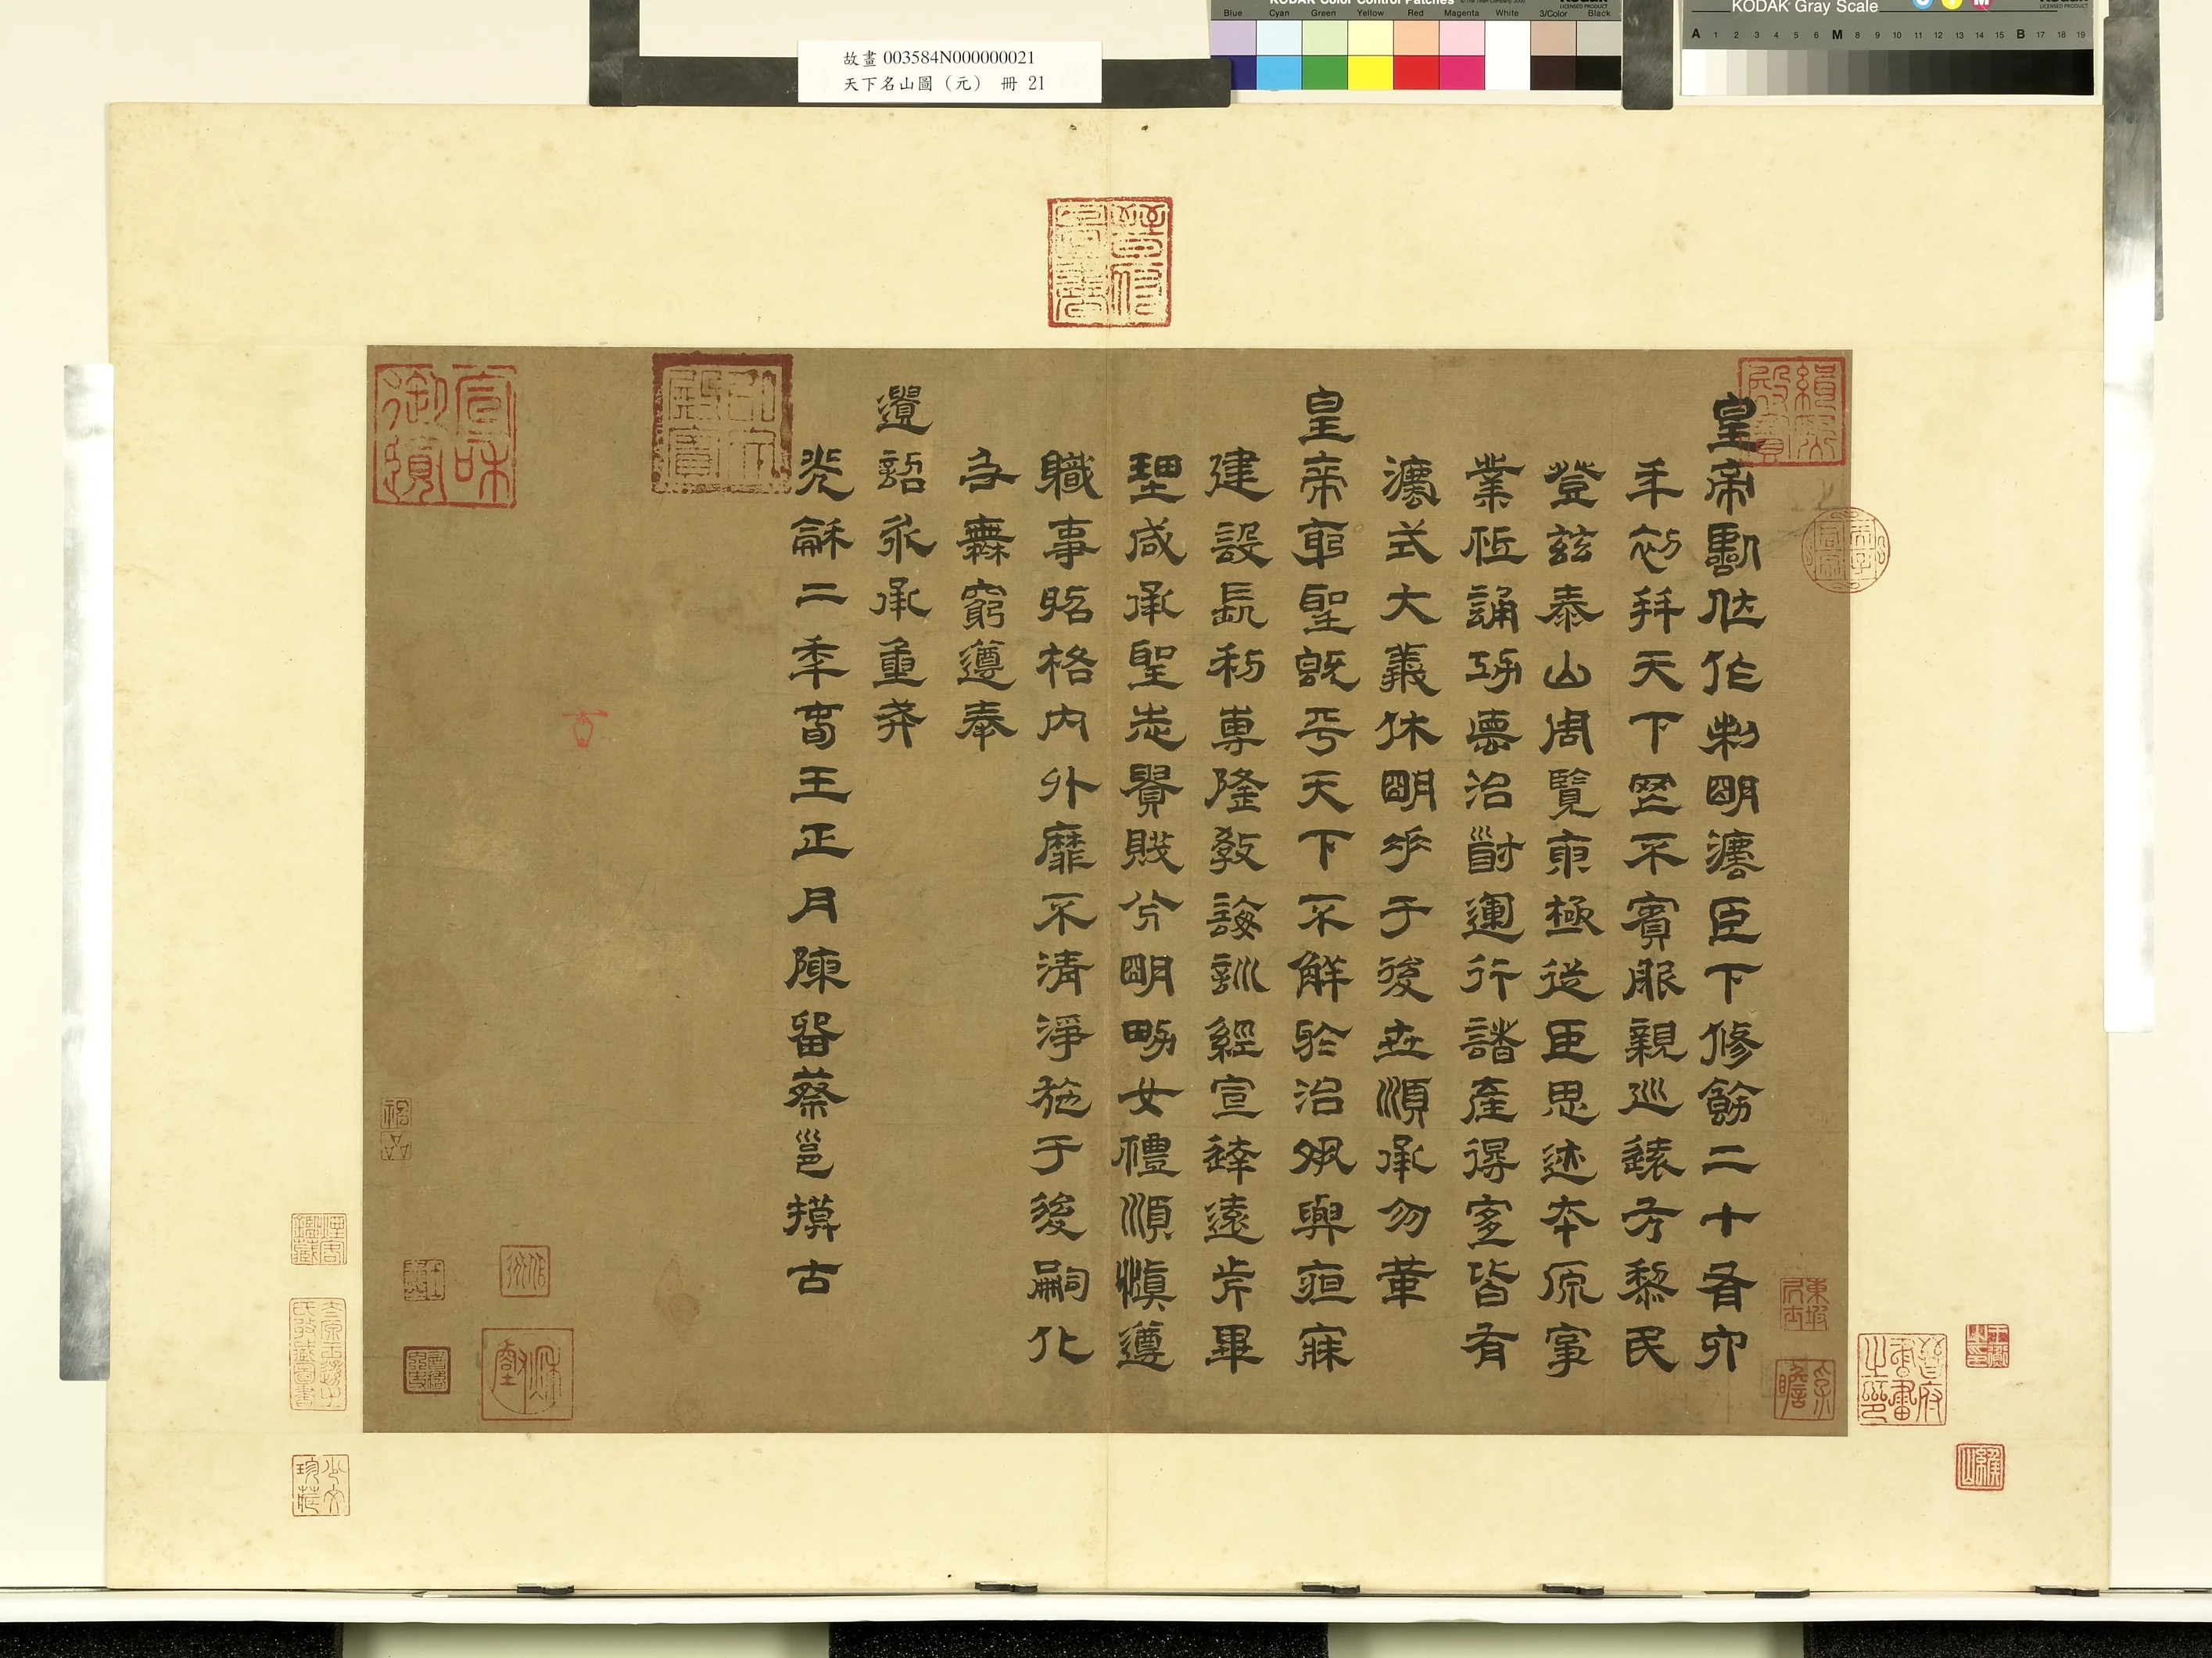 故畫 003584N000000021
天下名山圖（元） 冊 21
KODAK Color Control Patches
Blue Cyan Green Yellow Red Magenta White 3/Color Black
KODAK Gray Scale
A 1 2 3 4 5 6 M 8 9 10 11 12 13 14 15 B 17 18 19
皇帝臨位作制明灋臣下修飭二十有六
年初并天下罔不賓服親巡遠方黎民
登茲泰山周覽東極從臣思迹本原事
業祗誦功悳治道運行諸產得宜皆有
灋式大義休明垂于後世順承勿革
皇帝躬聖旣平天下不解於治夙興夜寐
建設長利專隆教誨訓經宣達遠近畢
理咸承聖志貴賤分明男女禮順慎遵
職事昭隔內外靡不清淨施于後嗣化
及無窮遵奉
遺詔永承重戒
光龢二年春王正月陳留蔡邕摸古